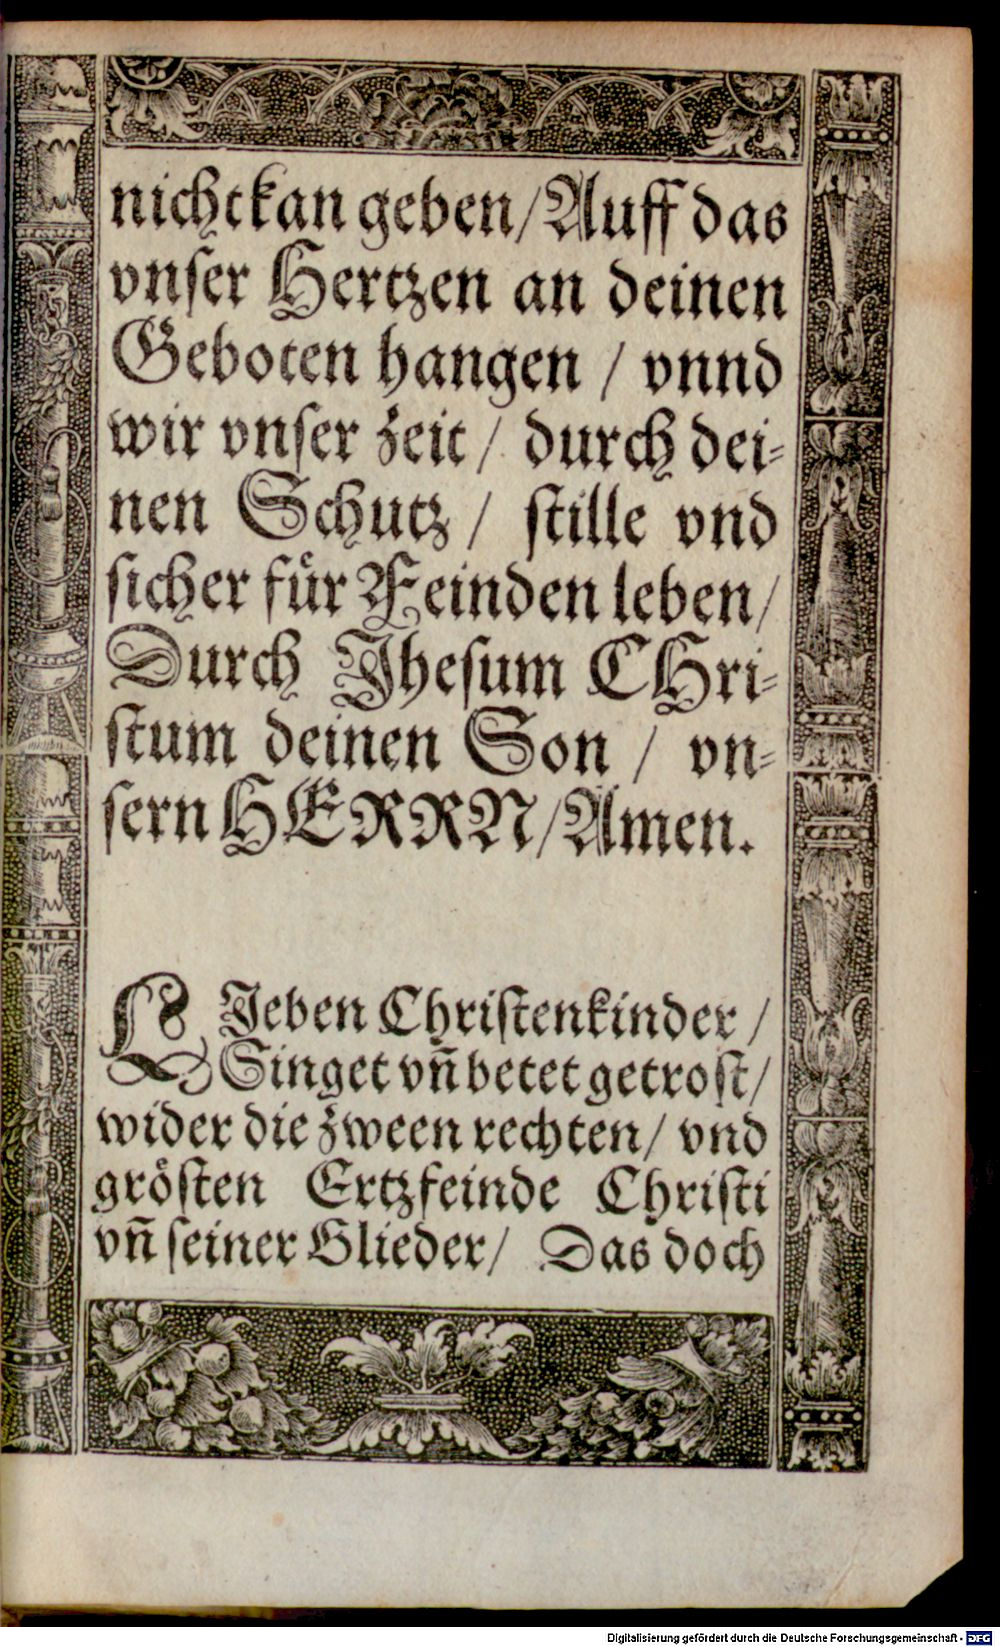 nicht kan geben / Auff das
vnser Hertzen an deinen
Geboten hangen / vnnd
wir vnser zeit / durch dei-
nen Schutz / stille vnd
sicher für Feinden leben /
Durch Jhesum CHri-
stum deinen Son / vn-
sern HERRN / Amen.
LJeben Christenkinder /
Singet vn̄ betet getrost /
wider die zween rechten / vnd
grösten Ertzfeinde Christi
vn̄ seiner Glieder / Das doch
Digitalisierung gefördert durch die Deutsche Forschungsgemeinschaft - DFG